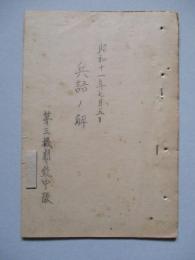 昭和十一年七月五日
兵語ノ解
第三機関銃中隊